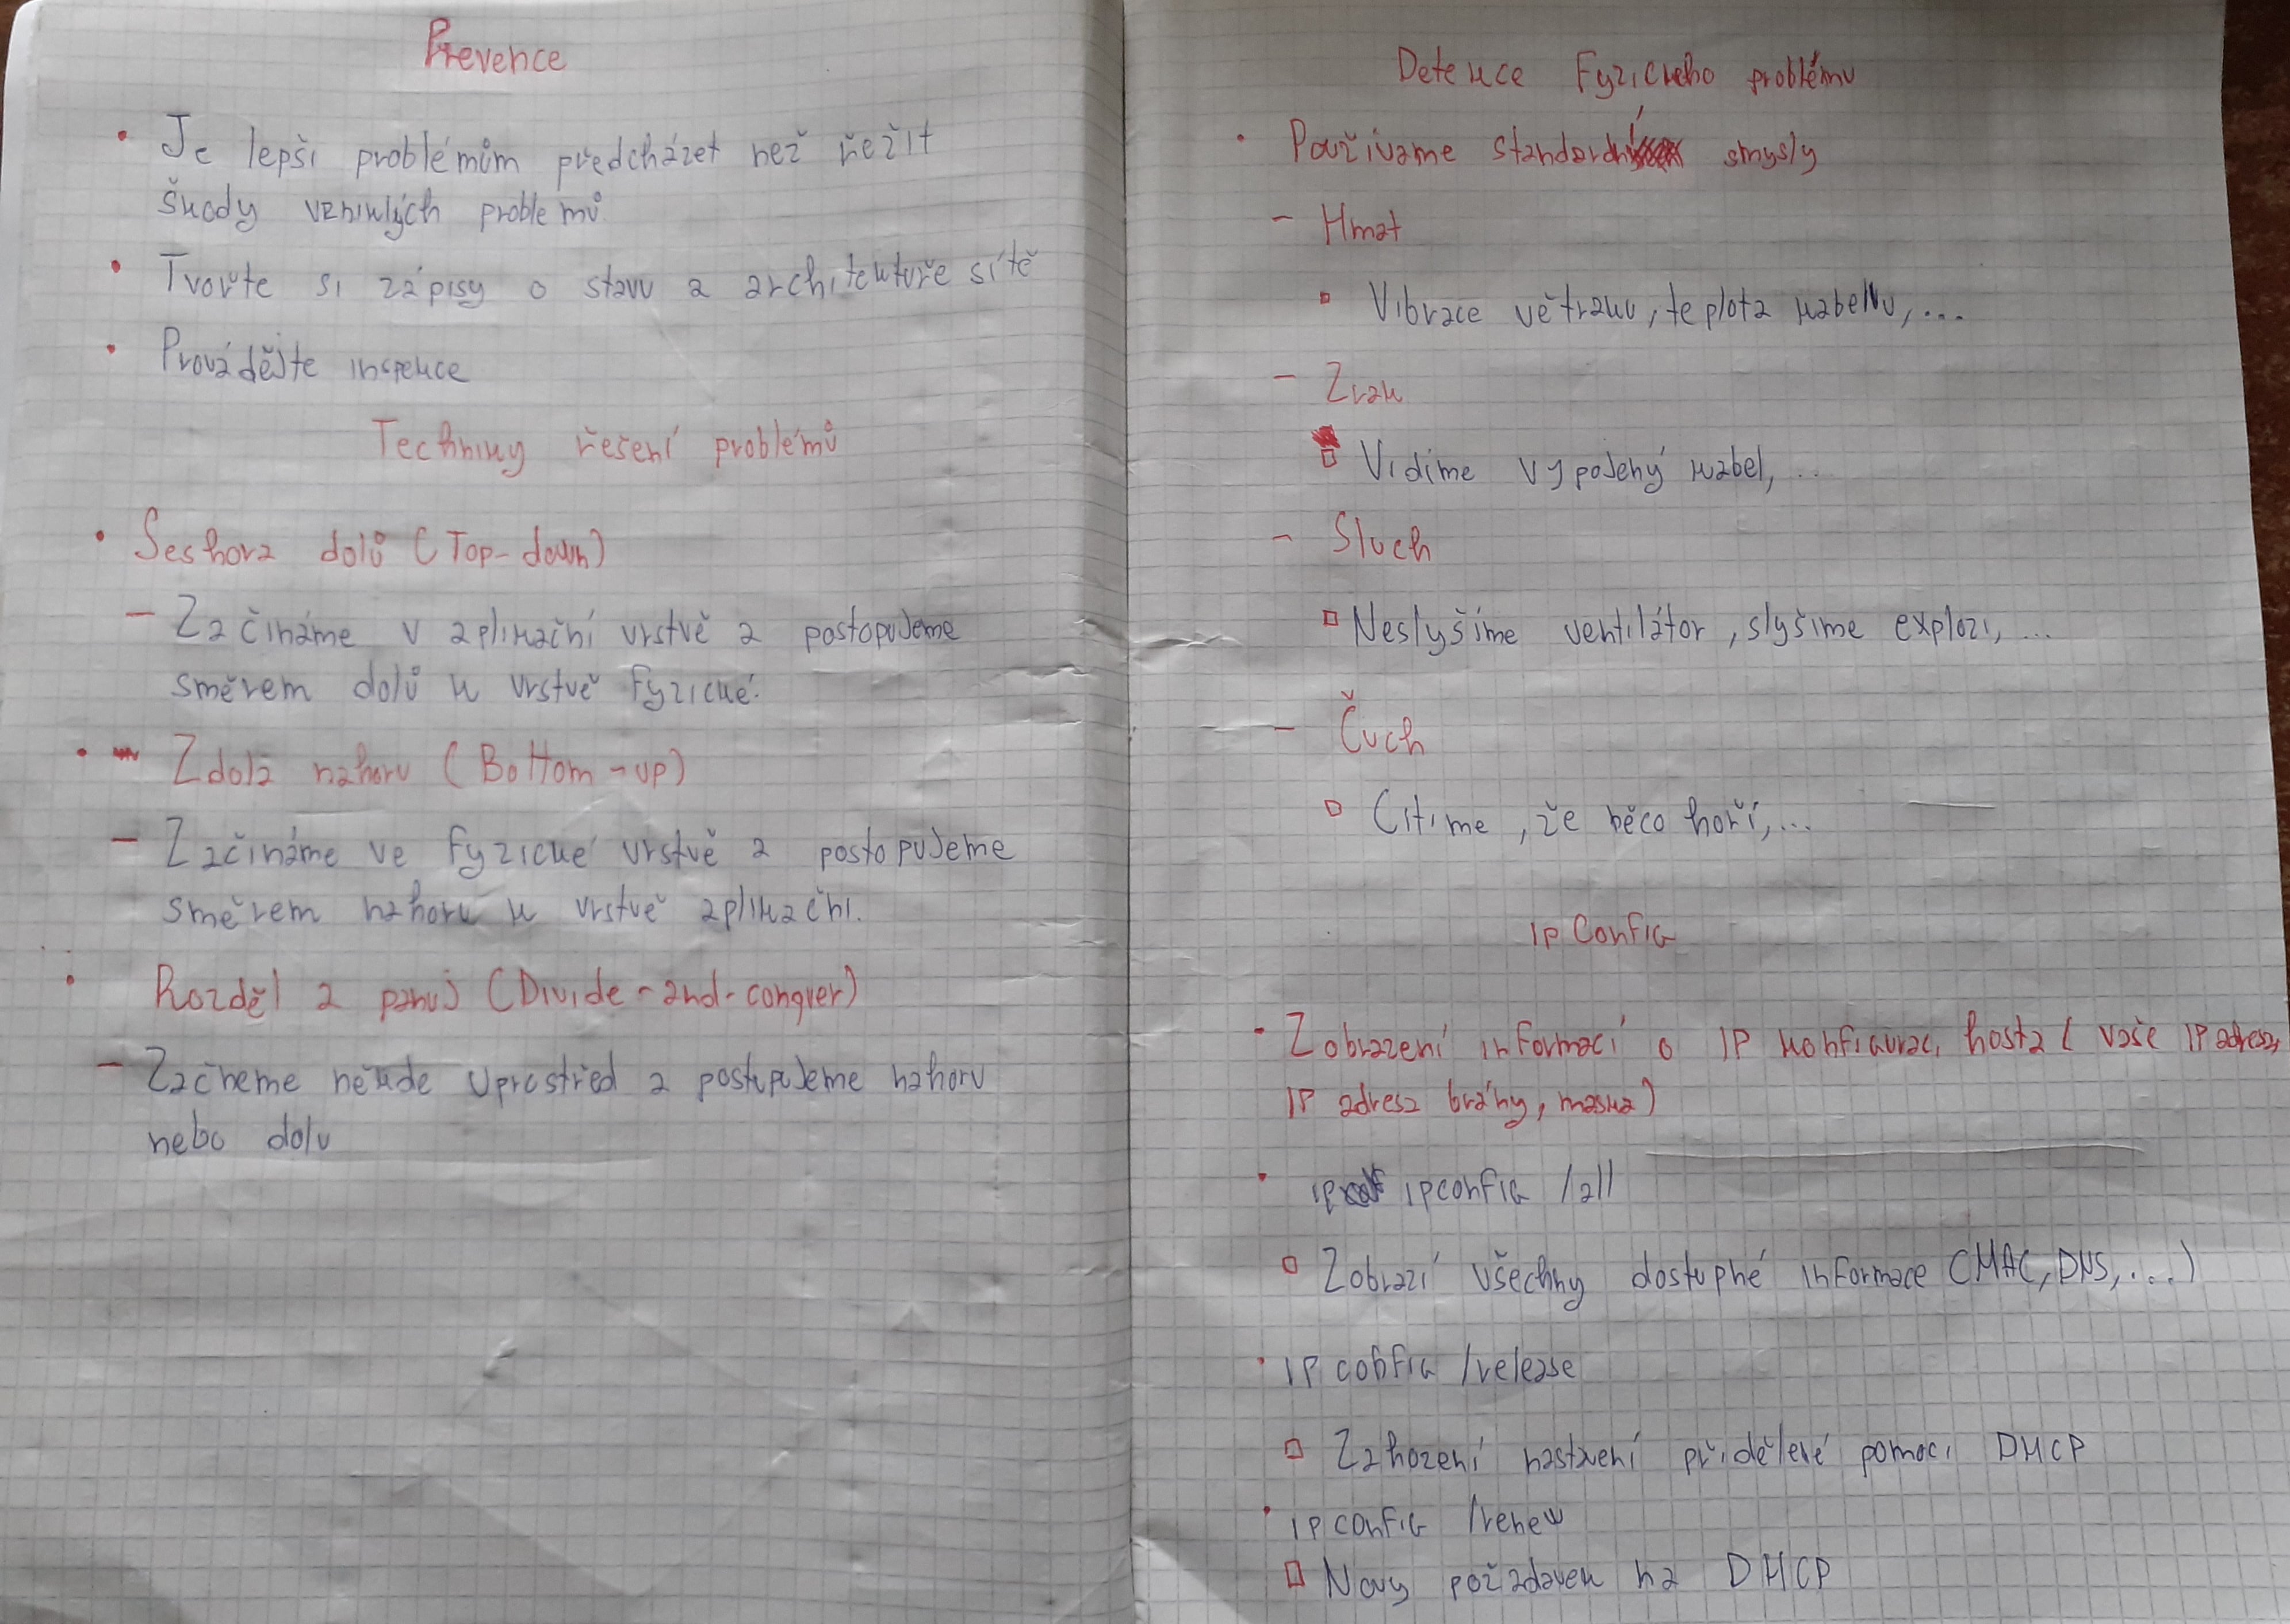 Prevence
• Je lepší problémům předcházet než řežit
škody vzniklých problémů
• Tvořte si zápisy o stavu a architektuře sítě
• Provádějte inspekce
Techniky řešení problémů
• Seshora dolů (Top-down)
– Začínáme v aplikační vrstvě a postopujeme
směrem dolů k vrstvě fyzické.
• Zdola nahoru (Bottom-up)
– Začínáme ve fyzické vrstvě a postopujeme
směrem nahoru k vrstvě aplikační.
• Rozděl a panuj (Divide-and-conquer)
– Začneme někde uprostřed a postupujeme nahoru
nebo dolu
Detekce Fyzického problému
• Používáme standardní smysly
– Hmat
▫ Vibrace větraku, teplota kabelu, ...
– Zrak
▫ Vidíme vypojený kabel, ..
– Sluch
▫ Neslyšíme ventilátor, slyšíme explozi, ...
– Čuch
▫ Cítíme, že něco hoří, ...
IP Config
• Zobrazení informací o IP konfiguraci hosta (vaše IP adresa,
IP adresa brány, maska)
• ipconfig /all
▫ Zobrazí všechny dostupné informace (MAC, DNS, ...)
• IP config /release
▫ Zahození nastavení přidělené pomocí DHCP
• ipconfig /renew
▫ Novy požadavek na DHCP